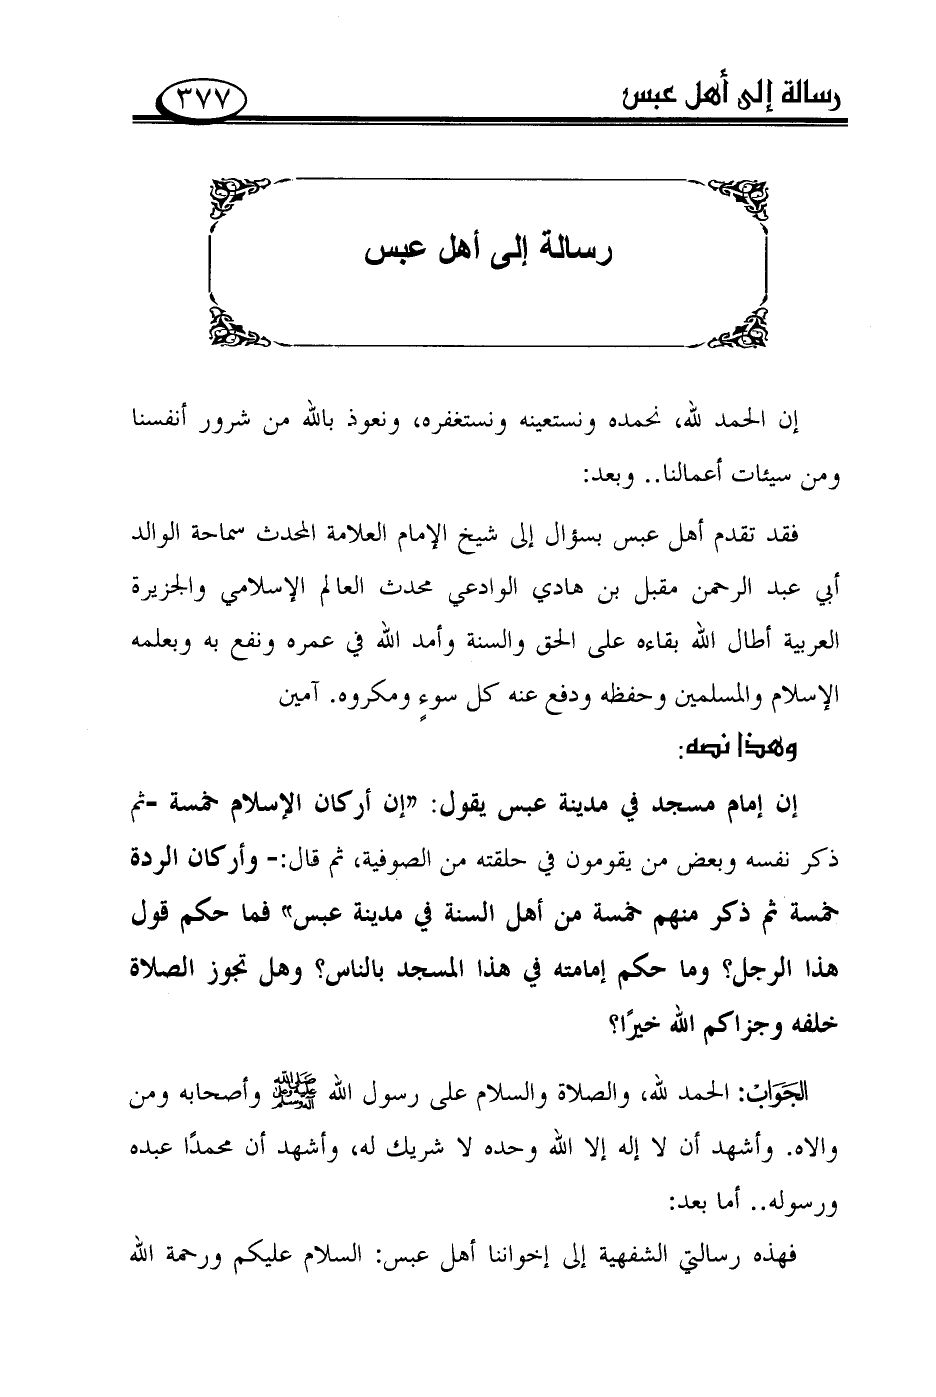 رسالة إلى أهل عبس
٣٧٧
رسالة إلى أهل عبس
إن الحمد لله، نحمده ونستعينه ونستغفره، ونعوذ بالله من شرور أنفسنا
ومن سيئات أعمالنا.. وبعد:
فقد تقدم أهل عبس بسؤال إلى شيخ الإمام العلامة المحدث سماحة الوالد
أبي عبد الرحمن مقبل بن هادي الوادعي محدث العالم الإسلامي والجزيرة
العربية أطال الله بقاءه على الحق والسنة وأمد الله في عمره ونفع به وبعلمه
الإسلام والمسلمين وحفظه ودفع عنه كل سوءٍ ومكروه. آمين
وهذا نصه:
إن إمام مسجد في مدينة عبس يقول: «إن أركان الإسلام خمسة -ثم
ذكر نفسه وبعض من يقومون في حلقته من الصوفية، ثم قال:- وأركان الردة
خمسة ثم ذكر منهم خمسة من أهل السنة في مدينة عبس» فما حكم قول
هذا الرجل؟ وما حكم إمامته في هذا المسجد بالناس؟ وهل تجوز الصلاة
خلفه وجزاكم الله خيرًا؟
الجَوَابُ: الحمد لله، والصلاة والسلام على رسول الله ﷺ وأصحابه ومن
والاه. وأشهد أن لا إله إلا الله وحده لا شريك له، وأشهد أن محمدًا عبده
ورسوله.. أما بعد:
فهذه رسالتي الشفهية إلى إخواننا أهل عبس: السلام عليكم ورحمة الله